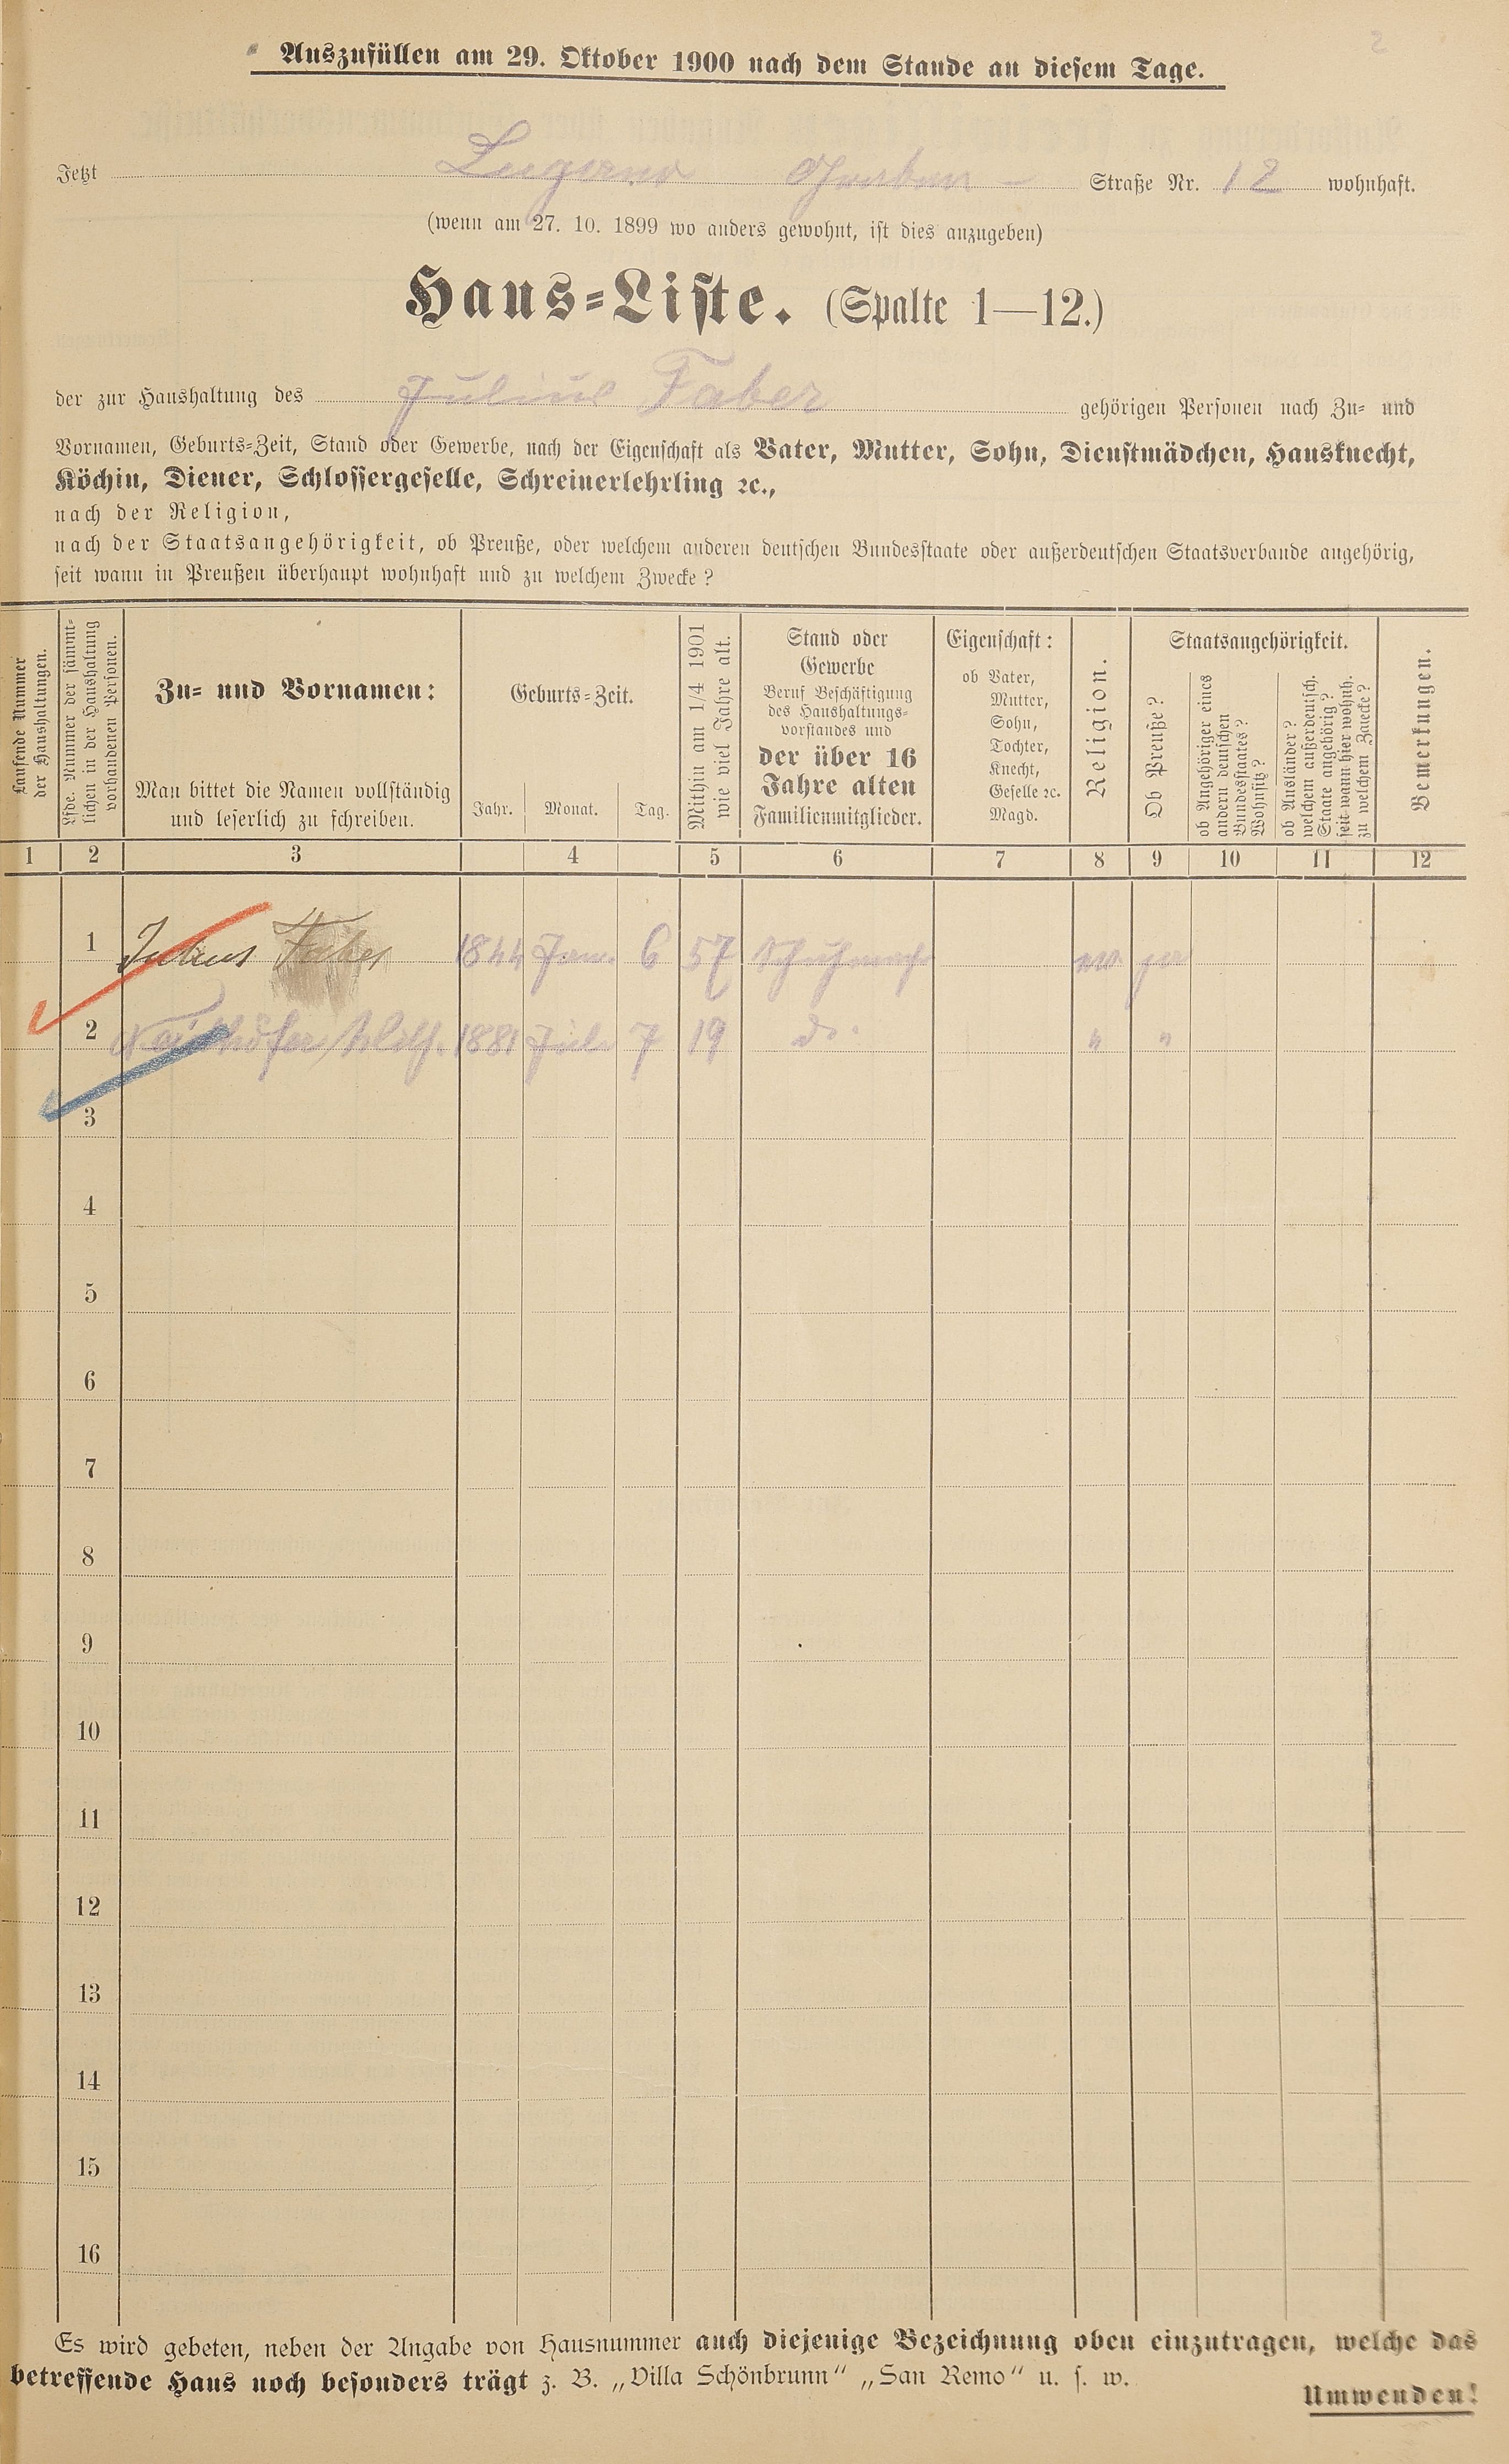 2
Auszufüllen am 29. Oktober 1900 nach dem Stande an diesem Tage.
Jetzt Lugano Graben- Straße Nr. 12 wohnhaft.
(wenn am 27. 10. 1899 wo anders gewohnt, ist dies anzugeben)
Haus-Liste. (Spalte 1—12.)
der zur Haushaltung des Julius Faber gehörigen Personen nach Zu- und
Vornamen, Geburts-Zeit, Stand oder Gewerbe, nach der Eigenschaft als Vater, Mutter, Sohn, Dienstmädchen, Hausknecht,
Köchin, Diener, Schlossergeselle, Schreinerlehrling ꝛc.,
nach der Religion,
nach der Staatsangehörigkeit, ob Preuße, oder welchem anderen deutschen Bundesstaate oder außerdeutschen Staatsverbande angehörig,
seit wann in Preußen überhaupt wohnhaft und zu welchem Zwecke?
Laufende Nummer
der Haushaltungen.
Lfde. Nummer der sämmt-
lichen in der Haushaltung
vorhandenen Personen.
Zu- und Vornamen:
Man bittet die Namen vollständig
und leserlich zu schreiben.
Geburts-Zeit.
Jahr. Monat. Tag.
Mithin am 1/4 1901
wie viel Jahre alt.
Stand oder
Gewerbe
Beruf Beschäftigung
des Haushaltungs-
vorstandes und
der über 16
Jahre alten
Familienmitglieder.
Eigenschaft:
ob Vater,
Mutter,
Sohn,
Tochter,
Knecht,
Geselle ꝛc.
Magd.
Religion.
Staatsangehörigkeit.
Ob Preuße?
ob Angehöriger eines
andern deutschen
Bundesstaates?
Wohnsitz?
ob Ausländer?
welchem außerdeutsch.
Staate angehörig?
seit wann hier wohnh.
zu welchem Zwecke?
Bemerkungen.
1 2 3 4 5 6 7 8 9 10 11 12
1 Julius Faber 1844 Jan. 6 57 Schuhmach ev. ja
2 Wilh. 1881 Juli 7 19 do. " "
3
4
5
6
7
8
9
10
11
12
13
14
15
16
Es wird gebeten, neben der Angabe von Hausnummer auch diejenige Bezeichnung oben einzutragen, welche das
betreffende Haus noch besonders trägt z. B. „Villa Schönbrunn“ „San Remo“ u. s. w.
Umwenden!